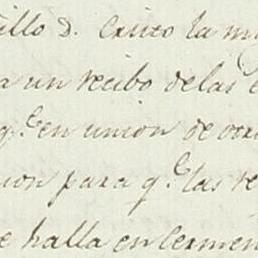 illo D. Cristo la m
a un recibo de las
q.e en union de otr
ion para q.e las re
e halla en Cermen